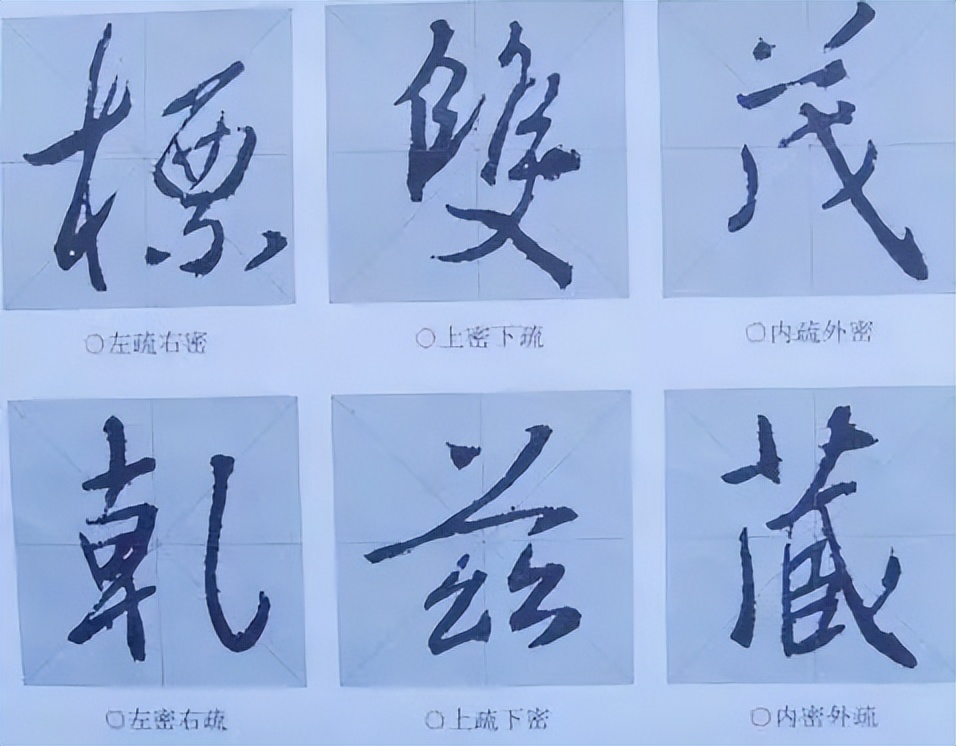 標 雙 茂
○左疏右密 ○上密下疏 ○内疏外密
乾 茲 藏
○左密右疏 ○上疏下密 ○内密外疏